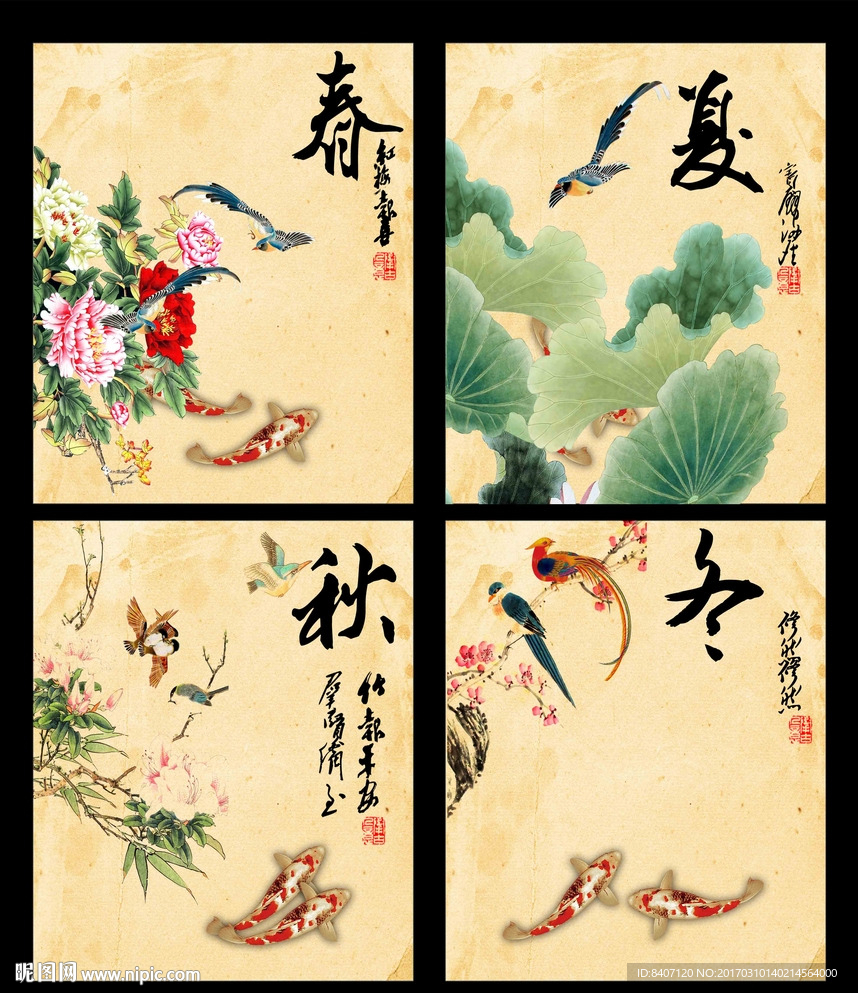 春
紅梅報喜
夏
秋
竹報平安
群賢備至
冬
修然穆然
昵图网 www.nipic.com
ID:8407120 NO:20170310140214564000